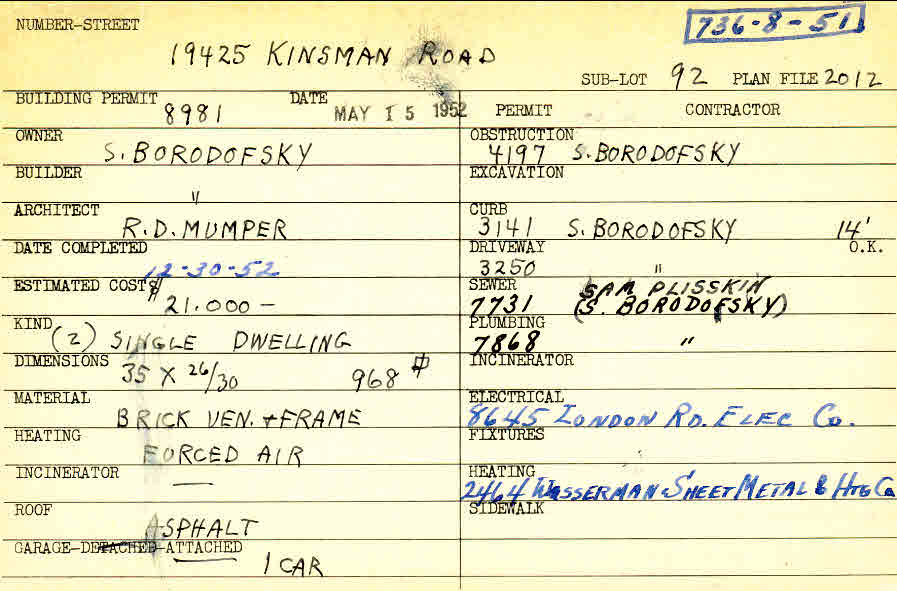 NUMBER-STREET
736-8-51
19425 KINSMAN ROAD
SUB-LOT 92 PLAN FILE 2012
BUILDING PERMIT 8981 DATE MAY 15 1952
PERMIT CONTRACTOR
OWNER S. BORODOFSKY
OBSTRUCTION 4197 S. BORODOFSKY
BUILDER "
EXCAVATION
ARCHITECT R.D. MUMPER
CURB 3141 S. BORODOFSKY 14'
DATE COMPLETED 12-30-52
DRIVEWAY 3250 " O.K.
ESTIMATED COST $21.000 —
SEWER 7731 SAM PLISSKIN
(S. BORODOFSKY)
KIND (2) SINGLE DWELLING
PLUMBING 7868 "
DIMENSIONS 35 X 26/30 968 #
INCINERATOR
MATERIAL BRICK VEN. + FRAME
ELECTRICAL 8645 LONDON RD. ELEC Co.
HEATING FORCED AIR
FIXTURES
INCINERATOR —
HEATING 2464 WASSERMAN SHEET METAL & HTG Co
ROOF ASPHALT
SIDEWALK
GARAGE-DETACHED-ATTACHED 1 CAR